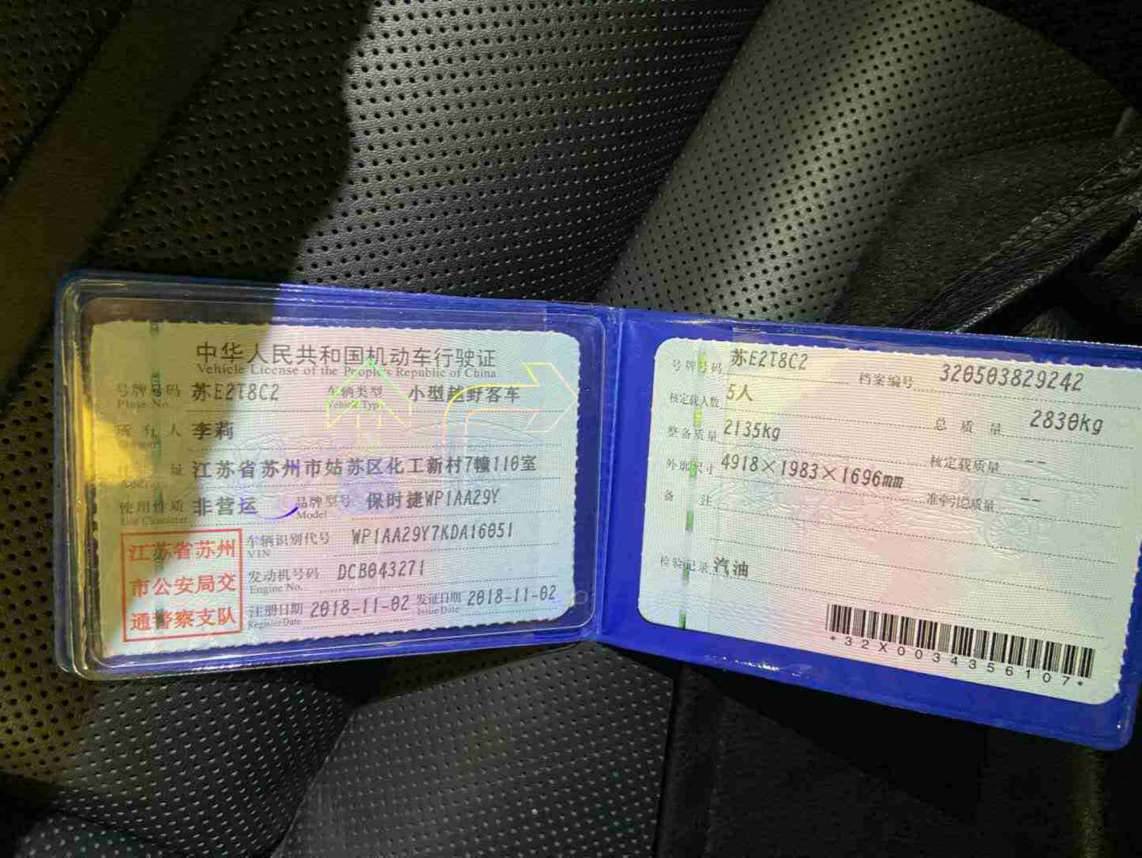 中华人民共和国机动车行驶证
Vehicle License of the People's Republic of China
号牌号码 苏E2T8C2 车辆类型 小型越野客车
Plate No. Vehicle Type
所有人 李莉
住址 江苏省苏州市姑苏区化工新村7幢110室
使用性质 非营运 品牌型号 保时捷WP1AA29Y
Use Character Model
车辆识别代号 WP1AA29Y7KDA16051
VIN
发动机号码 DCB043271
Engine No.
注册日期 2018-11-02 发证日期 2018-11-02
Register Date Issue Date
江苏省苏州
市公安局交
通警察支队
号牌号码 苏E2T8C2 档案编号 320503829242
核定载人数 5人 总质量 2830kg
整备质量 2135kg 核定载质量 --
外廓尺寸 4918×1983×1696mm 准牵引总质量 --
备注
检验记录 汽油
*32X0034356107*